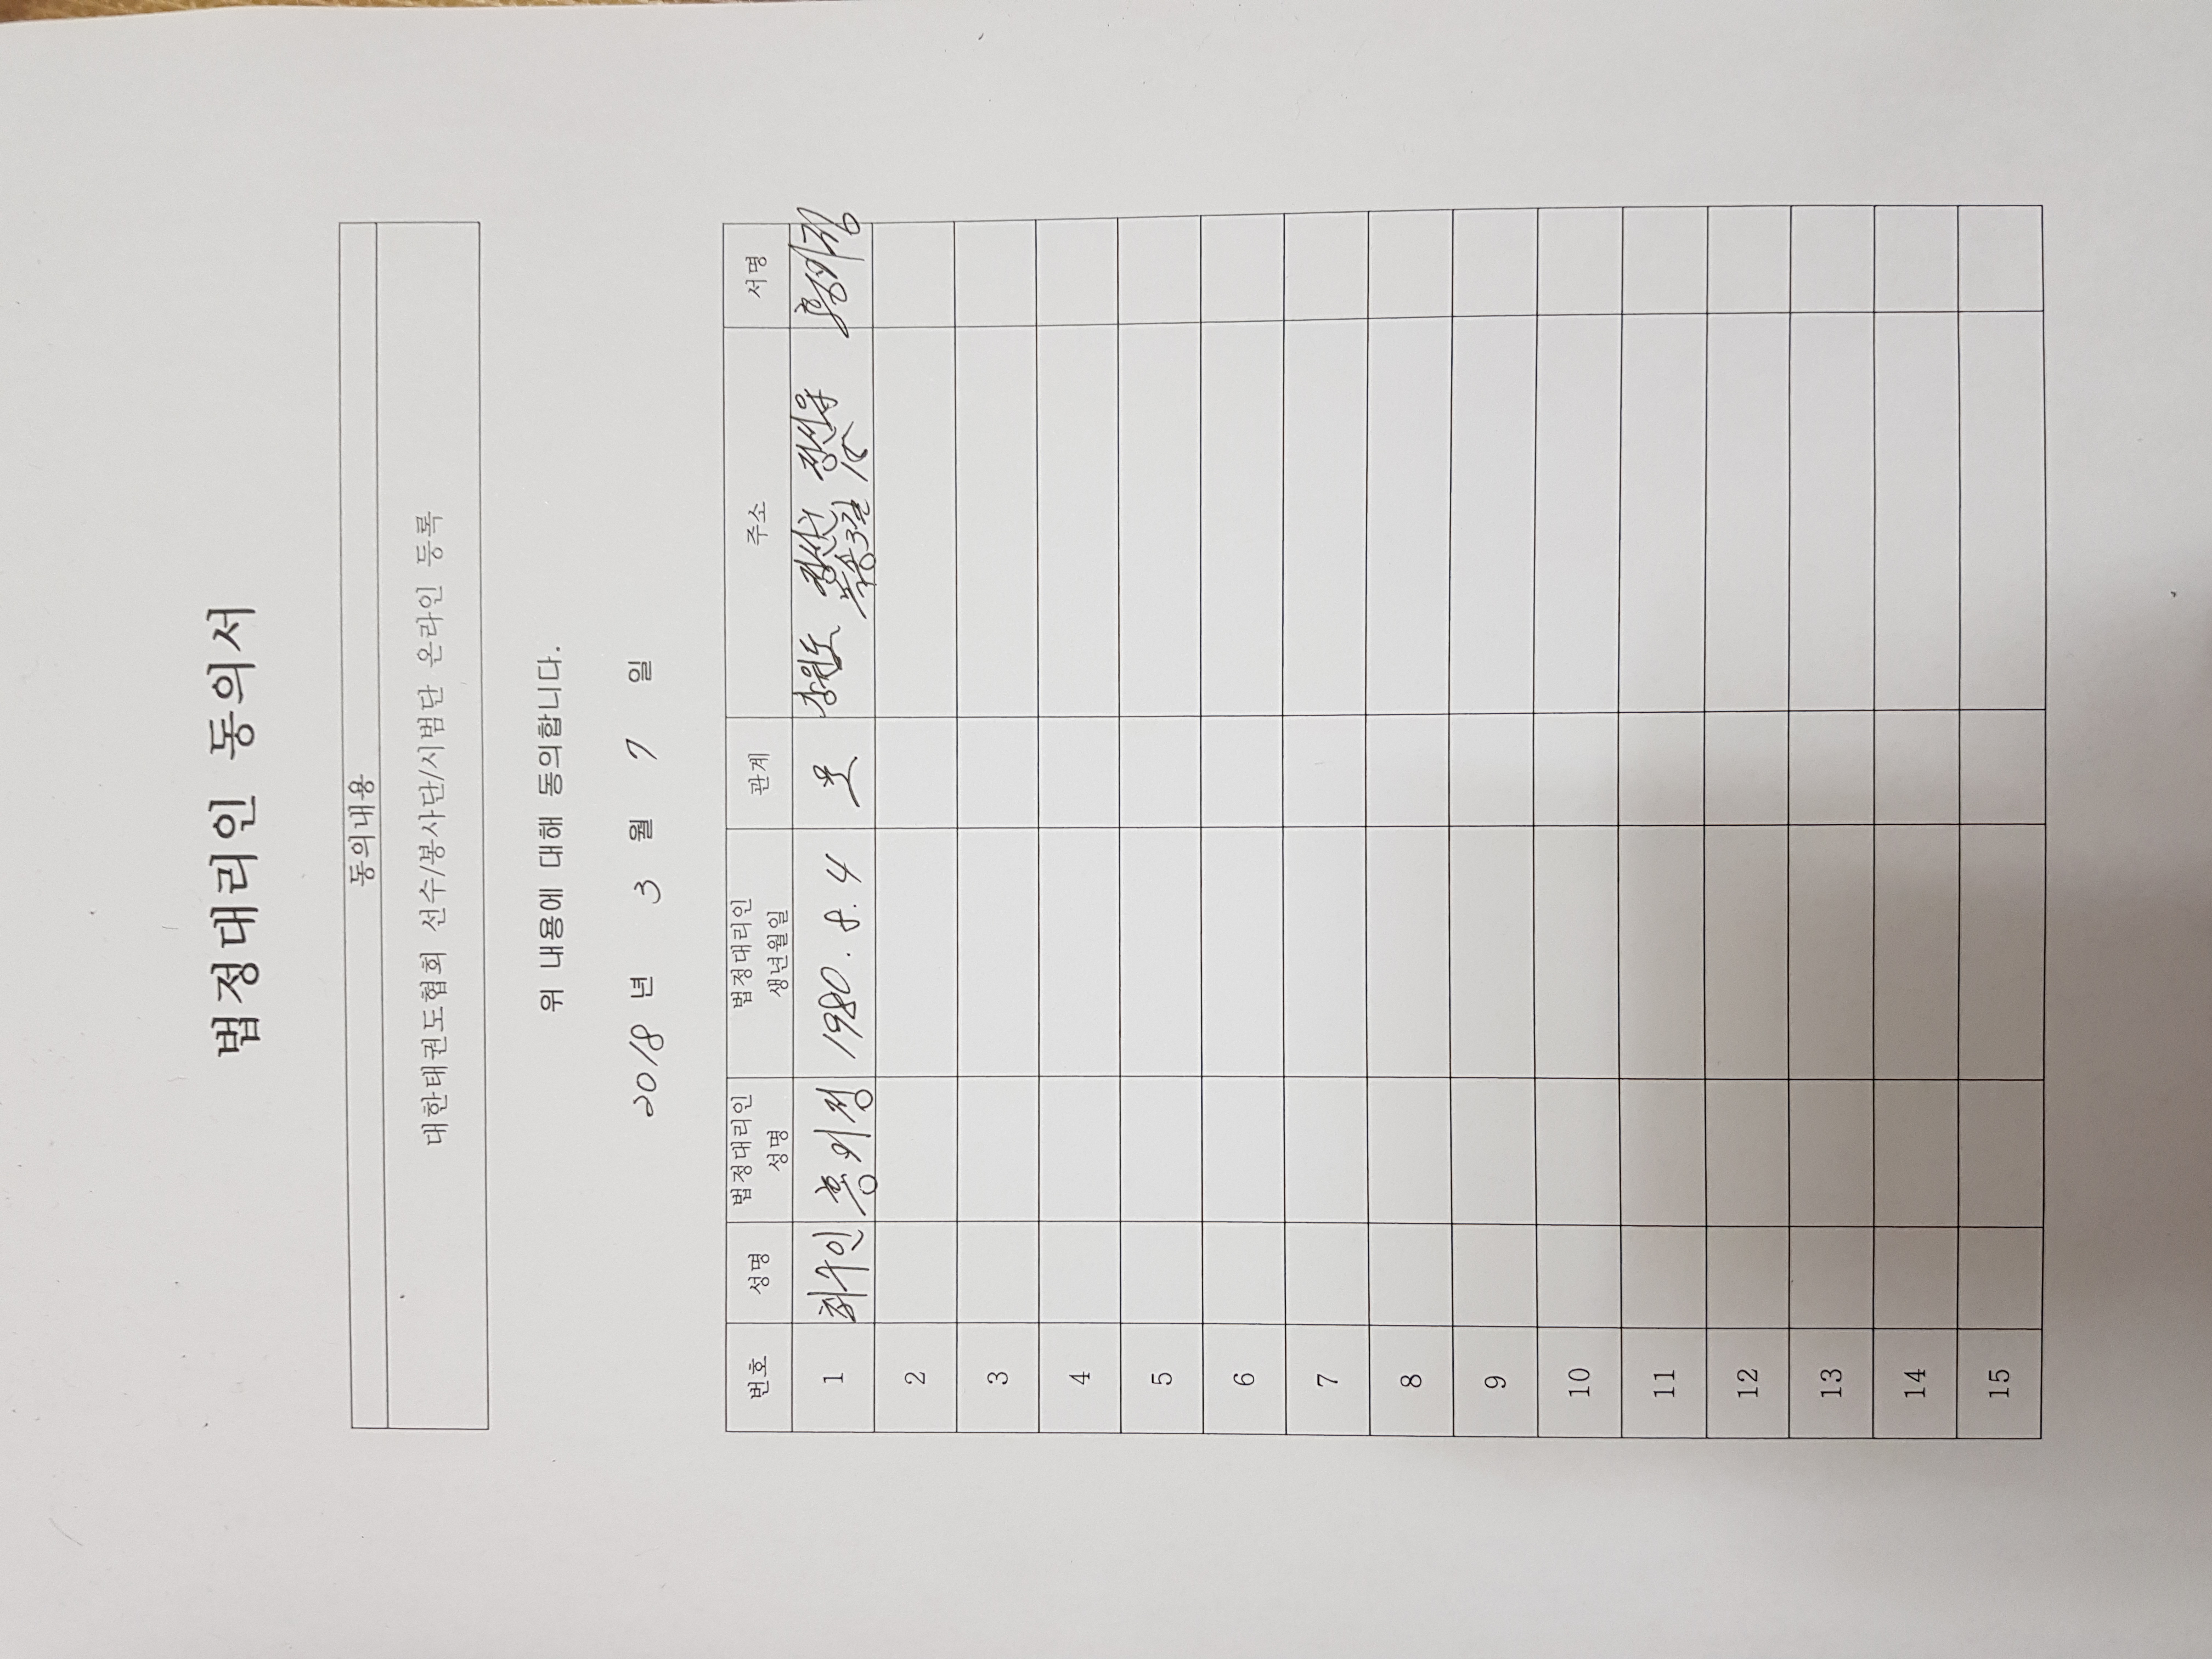 법정대리인 동의서
동의내용
대한태권도협회 선수/봉사단/시범단 온라인 등록
위 내용에 대해 동의합니다.
2018 년 3 월 7 일
번호 성명 법정대리인 성명 법정대리인 생년월일 관계 주소 서명
1 최수인 홍미정 1980. 8. 4 모 강원도 정선군 정선읍
녹송3길 15
2
3
4
5
6
7
8
9
10
11
12
13
14
15